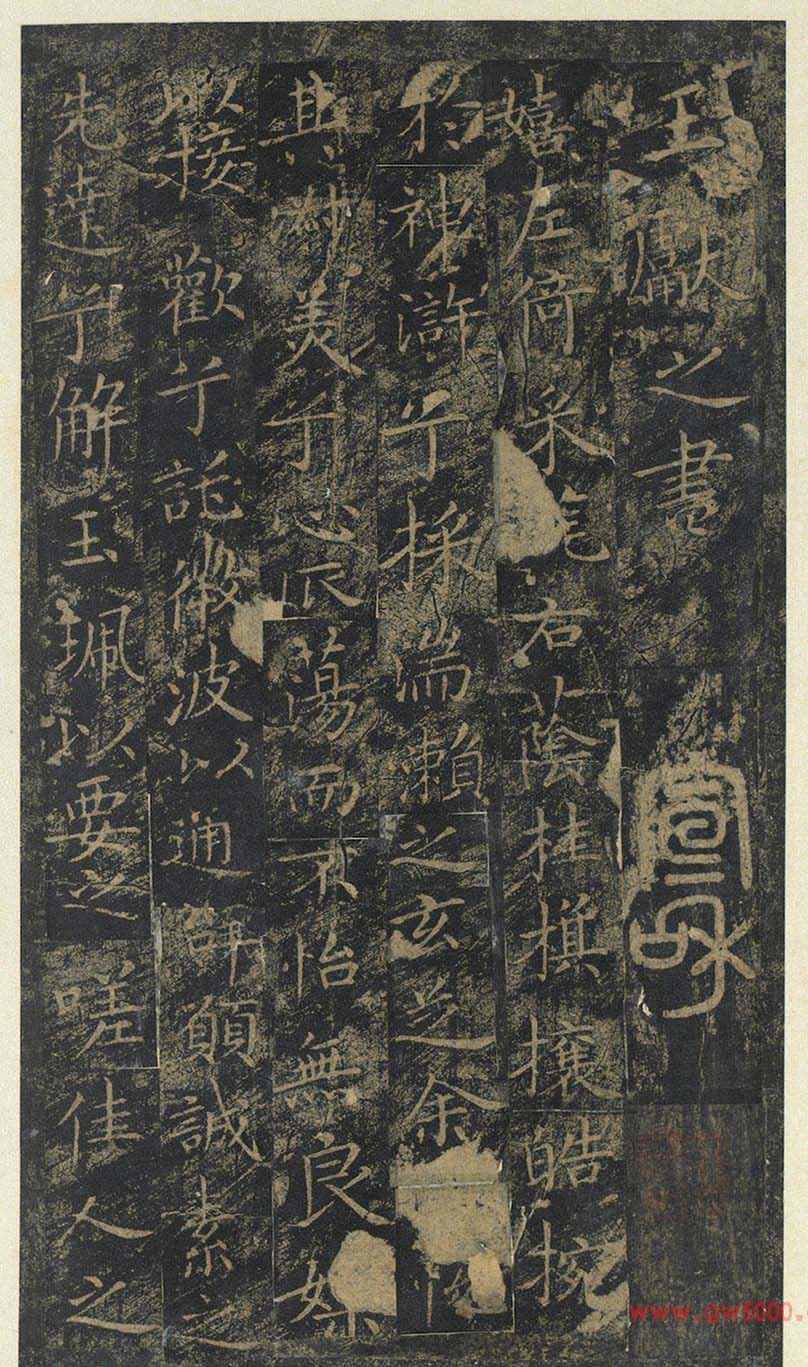 王獻之書
宣和
嬉左倚采旄右蔭桂旗攘皓捥
於神滸兮採湍瀨之玄芝余
其淑美兮心振蕩而不怡無良媒
以接歡兮託微波以通辭願誠素之
先達兮解玉珮以要之嗟佳人之
www.gw5000.